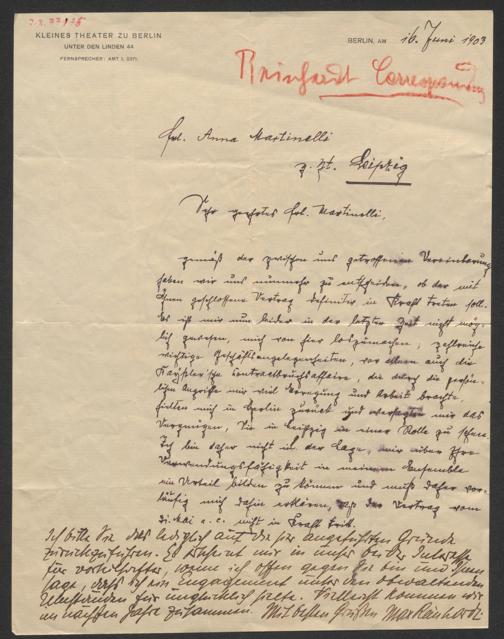 KLEINES THEATER ZU BERLIN
UNTER DEN LINDEN 44
FERNSPRECHER: AMT I, 2371.
BERLIN, AM 16. Juni 1903
Reinhardt
Frl. Anna Martinelli
z. Zt. Leipzig
Sehr geehrtes Frl. Martinelli,
gemäß der zwischen uns getroffenen Vereinbarung
haben wir uns nunmehr zu entscheiden, ob der mit
Ihnen geschlossene Vertrag definitiv in Kraft treten soll.
Es ist mir nun leider in der letzten Zeit nicht mög-
lich gewesen, mich von hier loszumachen, zahlreiche
wichtige Geschäftsangelegenheiten, vor allem auch die
Kayßler'sche Contractbruchsaffaire, die durch die persön-
lichen Angriffe mir viel Aufregung und Arbeit brachte,
hielten mich in Berlin zurück und versagten mir das
Vergnügen, Sie in Leipzig in einer Rolle zu sehen.
Ich bin daher nicht in der Lage, mir über Ihre
Verwendungsfähigkeit in meinem Ensemble
ein Urteil bilden zu können und muß daher vor-
läufig mich dahin erklären, daß der Vertrag vom
Mai a. c. nicht in Kraft tritt.
Ich bitte Sie dies lediglich auf die hier angeführten Gründe
zurückzuführen. Es scheint mir in unser beider Interesse
für vorteilhafter, wenn ich offen gegen Sie bin und Ihnen
sage, dass ich ein Engagement unter den obwaltenden
Umständen für unglücklich halte. Vielleicht kommen wir
im nächsten Jahre zusammen. Mit besten Grüßen Max Reinhardt